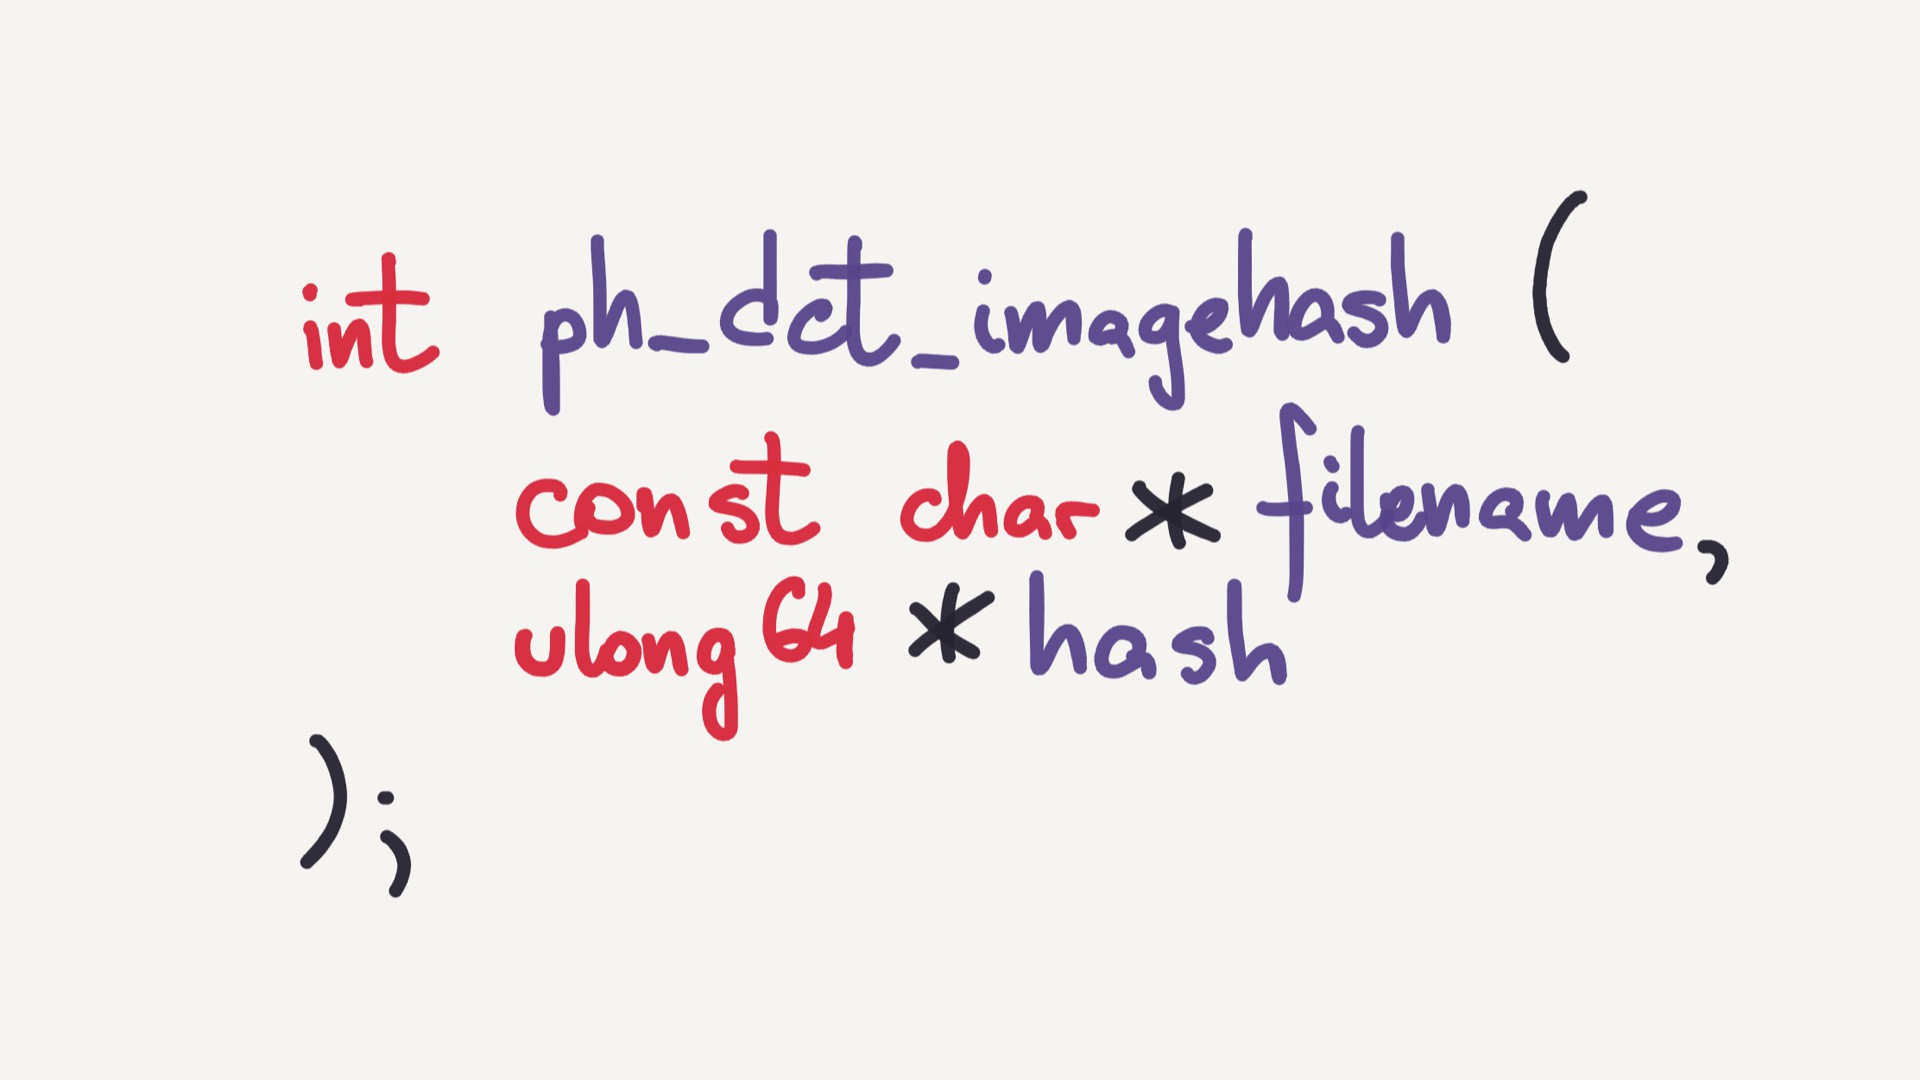 int ph_dct_imagehash (
const char * filename,
ulong64 * hash
);